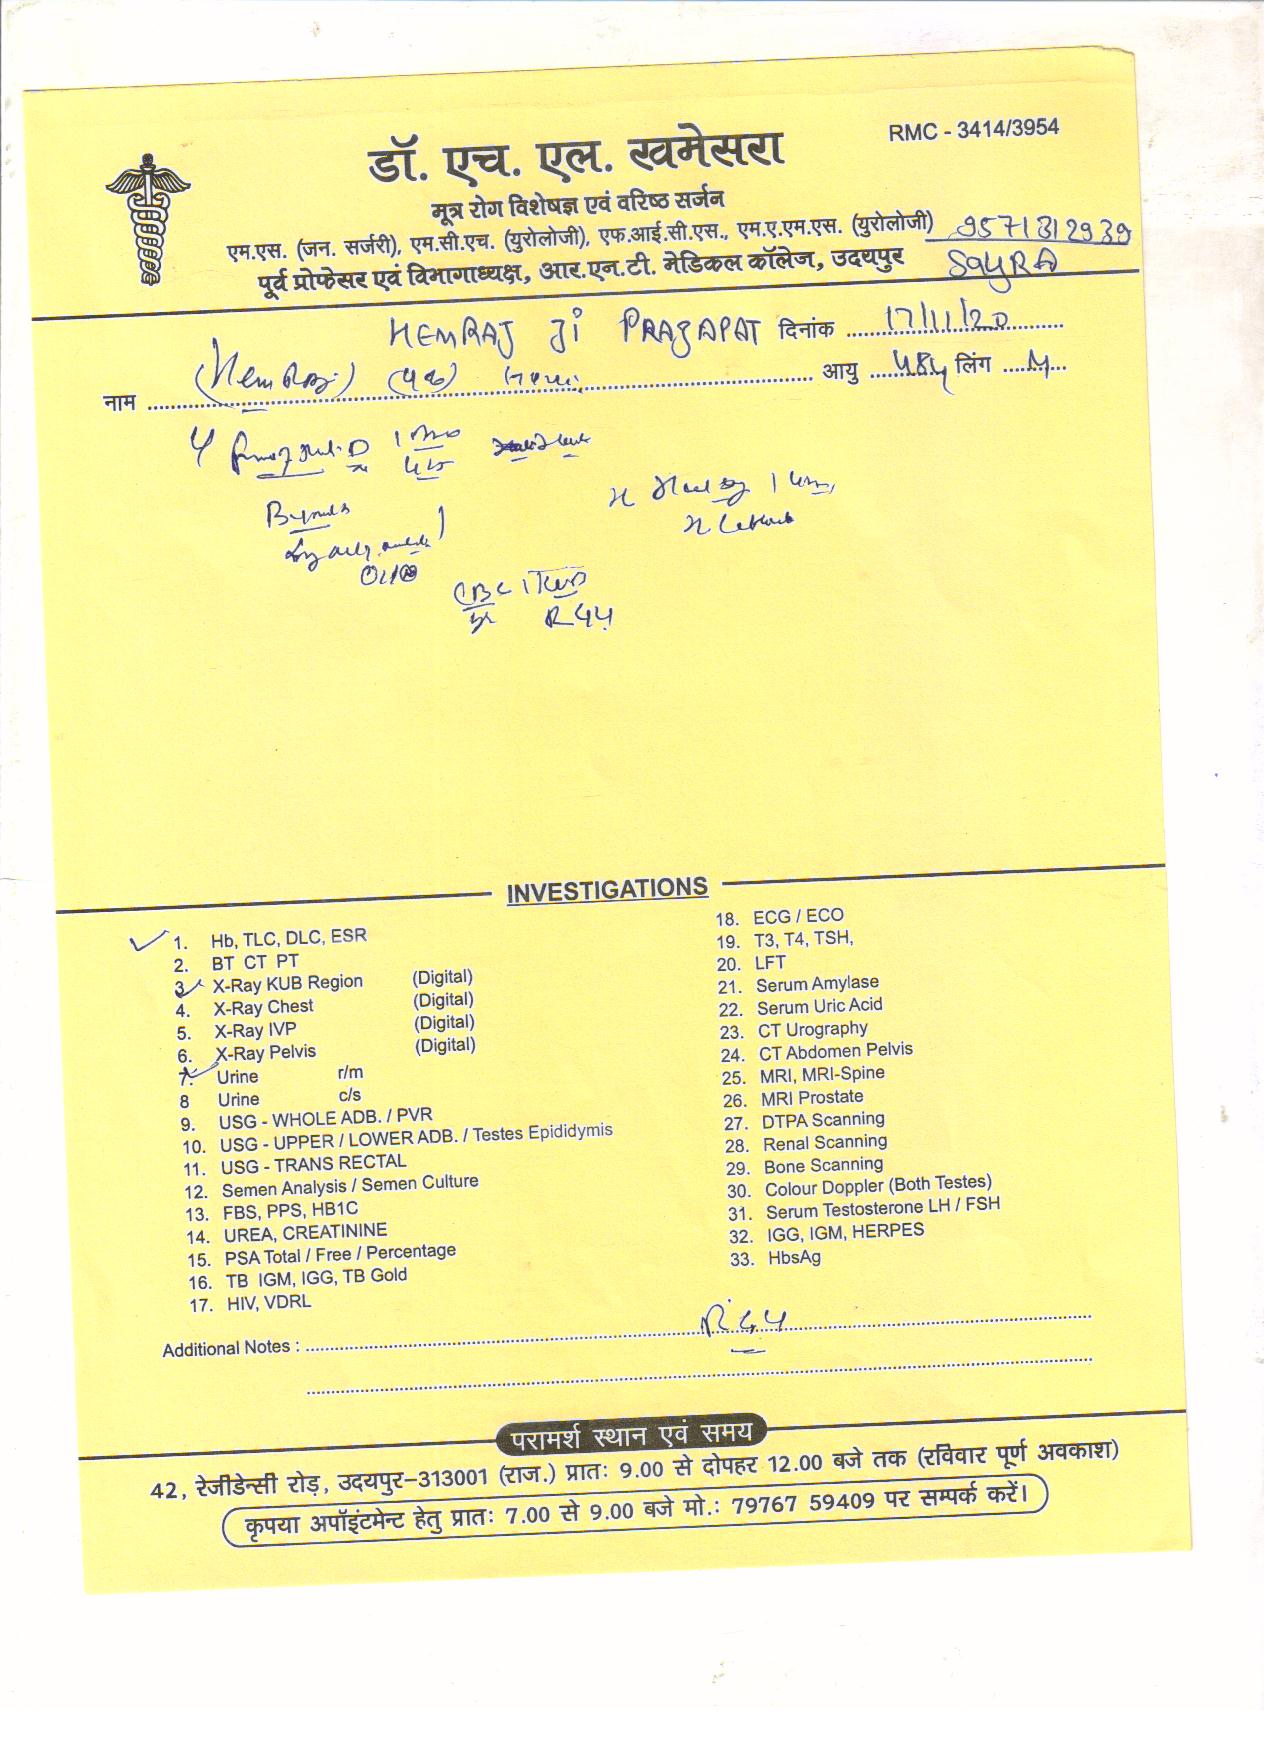 RMC - 3414/3954
डॉ. एच. एल. खमेसरा
मूत्र रोग विशेषज्ञ एवं वरिष्ठ सर्जन
एम.एस. (जन. सर्जरी), एम.सी.एच. (युरोलोजी), एफ.आई.सी.एस., एम.ए.एम.एस. (युरोलोजी) 9571312939
पूर्व प्रोफेसर एवं विभागाध्यक्ष, आर.एन.टी. मेडिकल कॉलेज, उदयपुर SayRA
HEMRAJ JI PRAJAPAT दिनांक 17/11/20
नाम (Hem Raj) आयु 48y लिंग M
CBC
RGU
INVESTIGATIONS
1. Hb, TLC, DLC, ESR
2. BT CT PT
3. X-Ray KUB Region (Digital)
4. X-Ray Chest (Digital)
5. X-Ray IVP (Digital)
6. X-Ray Pelvis (Digital)
7. Urine r/m
8 Urine c/s
9. USG - WHOLE ADB. / PVR
10. USG - UPPER / LOWER ADB. / Testes Epididymis
11. USG - TRANS RECTAL
12. Semen Analysis / Semen Culture
13. FBS, PPS, HB1C
14. UREA, CREATININE
15. PSA Total / Free / Percentage
16. TB IGM, IGG, TB Gold
17. HIV, VDRL
18. ECG / ECO
19. T3, T4, TSH,
20. LFT
21. Serum Amylase
22. Serum Uric Acid
23. CT Urography
24. CT Abdomen Pelvis
25. MRI, MRI-Spine
26. MRI Prostate
27. DTPA Scanning
28. Renal Scanning
29. Bone Scanning
30. Colour Doppler (Both Testes)
31. Serum Testosterone LH / FSH
32. IGG, IGM, HERPES
33. HbsAg
Additional Notes : RGU
परामर्श स्थान एवं समय
42, रेजीडेन्सी रोड़, उदयपुर-313001 (राज.) प्रातः 9.00 से दोपहर 12.00 बजे तक (रविवार पूर्ण अवकाश)
कृपया अपॉइंटमेन्ट हेतु प्रातः 7.00 से 9.00 बजे मो.: 79767 59409 पर सम्पर्क करें।